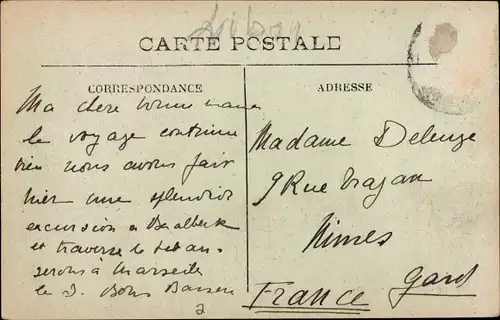 CARTE POSTALE
CORRESPONDANCE
ADRESSE
Ma chere bonne maman
le voyage continue
bien nous avons fait
hier une splendide
excursion a Baalbeck
et traversé le Liban
serons a Marseille
le 3. Bons Baisers
Madame Deleuze
9 Rue Trajan
Nimes
Gard
France